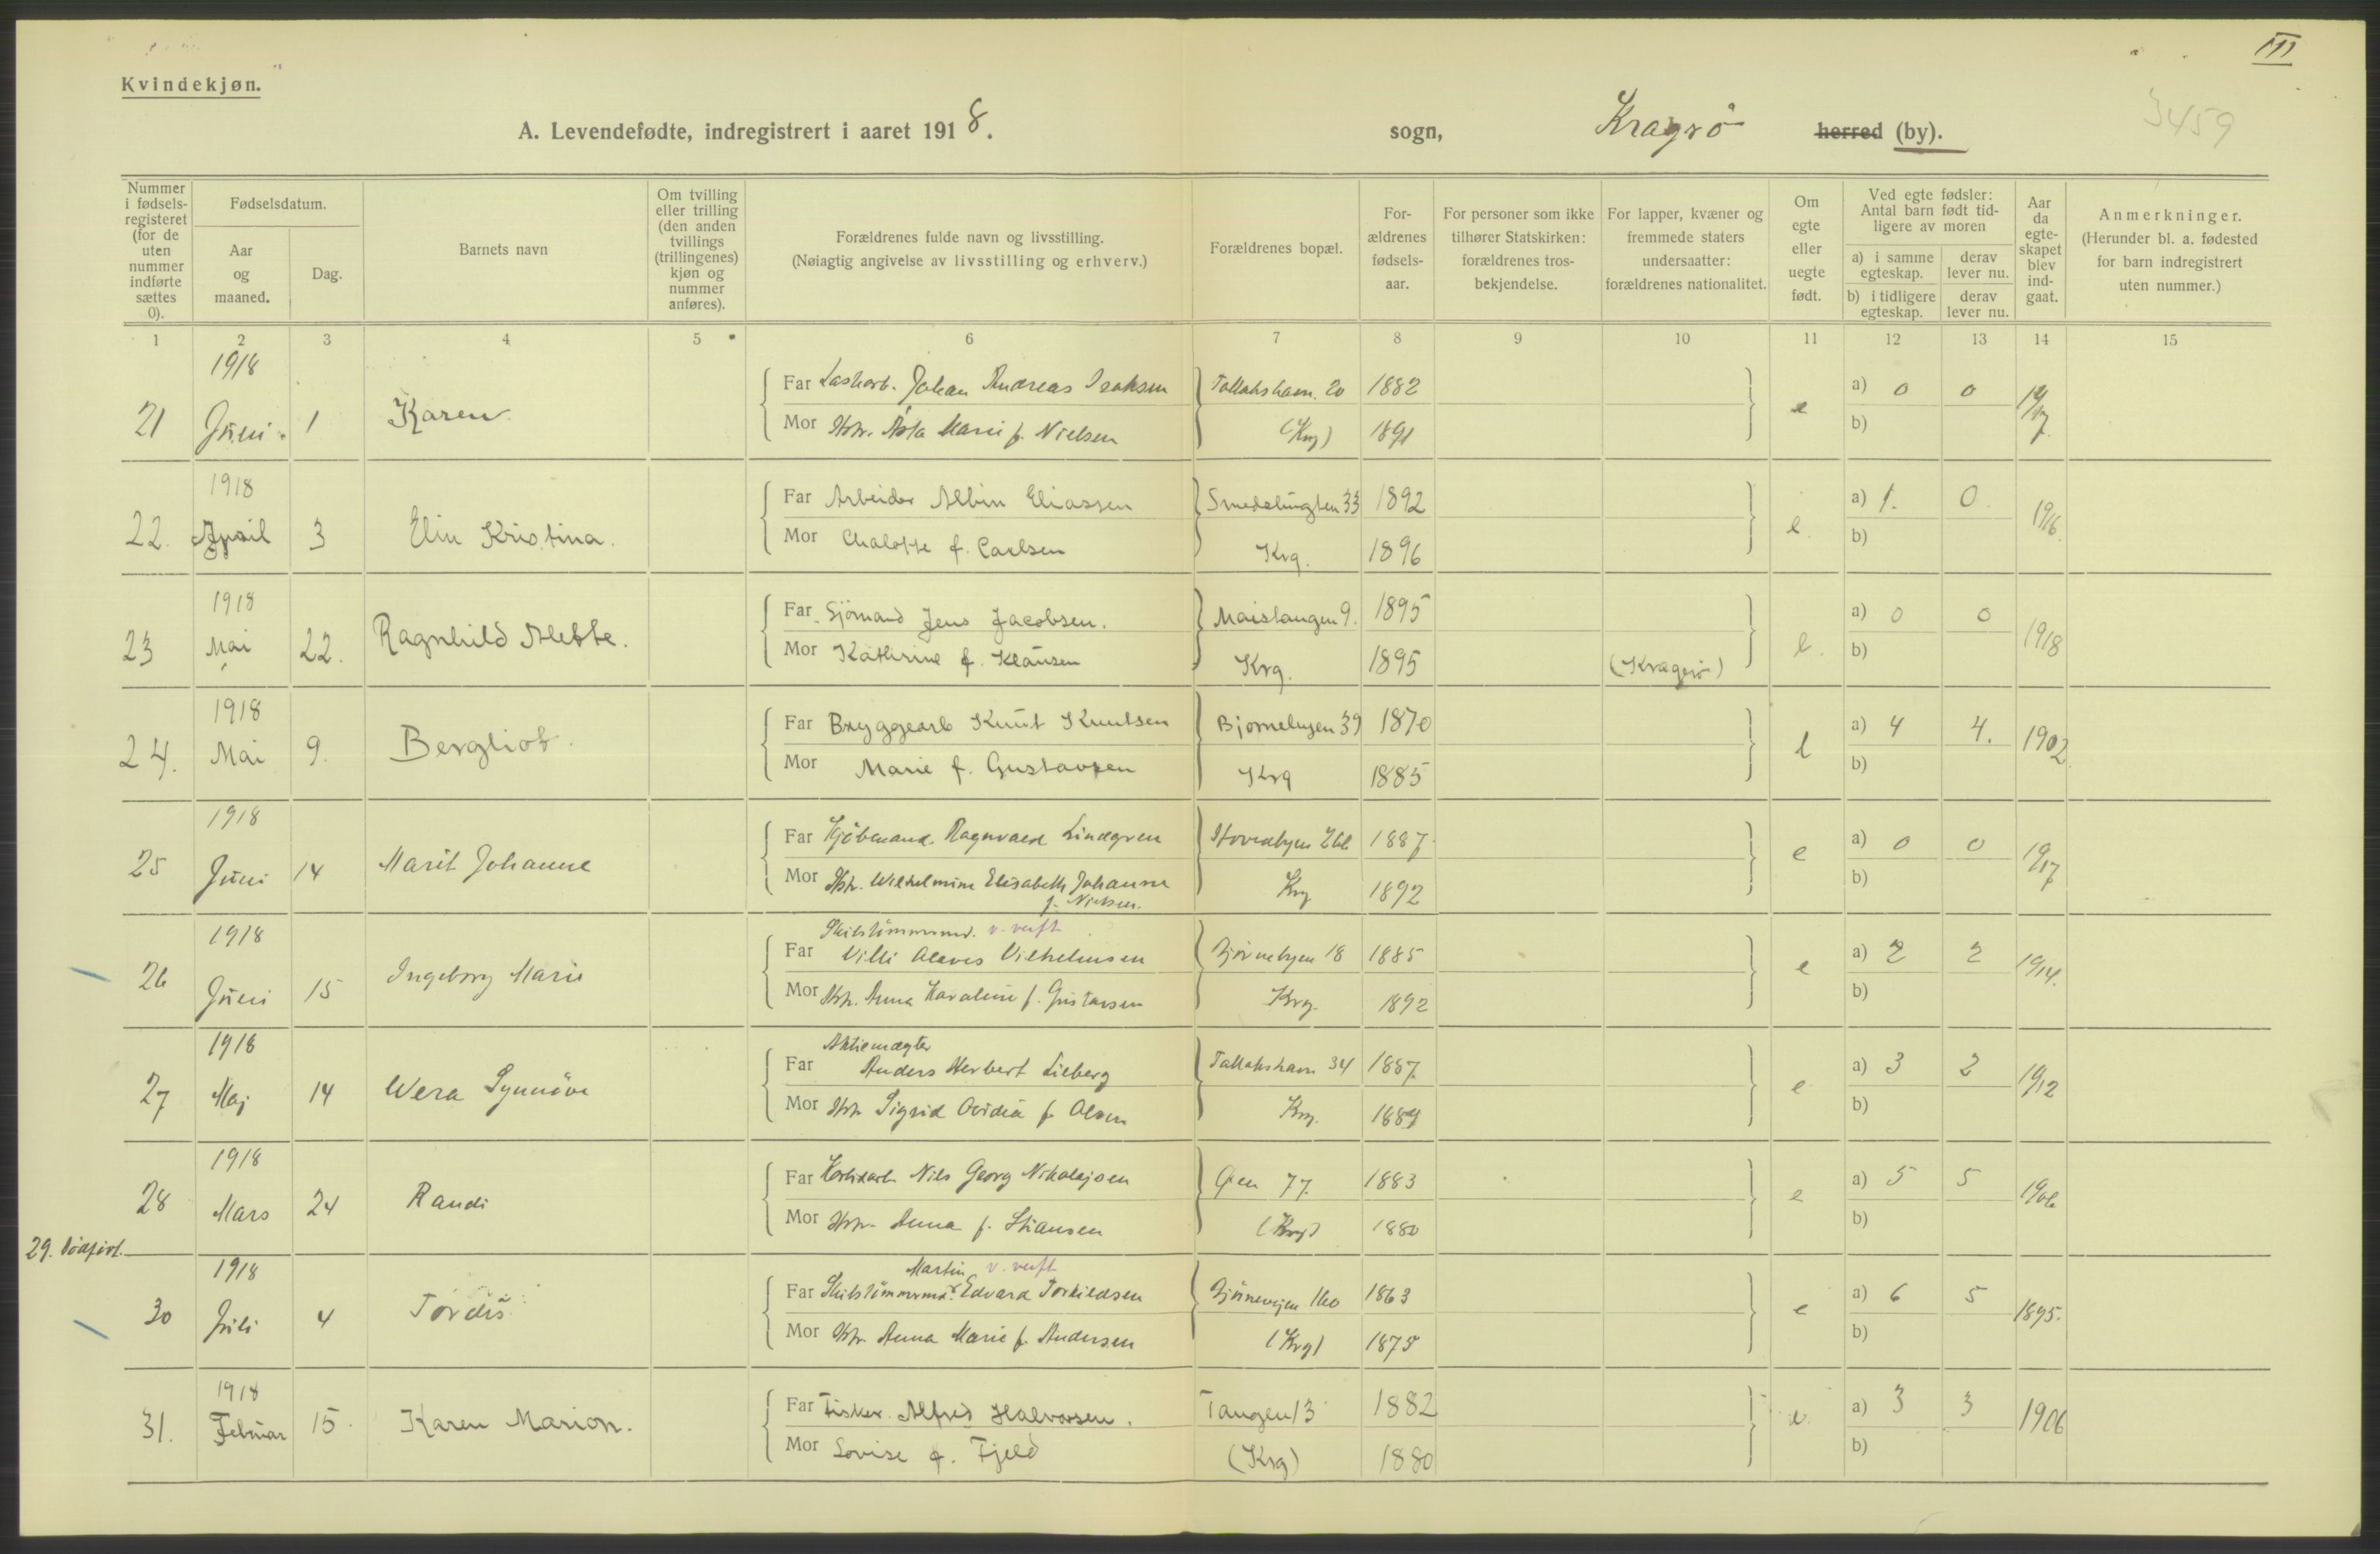 III
Kvindekjøn.
A. Levendefødte, indregistrert i aaret 1918. sogn, Kragerø herred (by).
3459
Nummer i fødselsregisteret (for de uten nummer indførte sættes 0).
Fødselsdatum.
Aar og maaned.
Dag.
Barnets navn
Om tvilling eller trilling (den anden tvillings (trillingenes) kjøn og nummer anføres).
Forældrenes fulde navn og livsstilling.
(Nøiagtig angivelse av livsstilling og erhverv.)
Forældrenes bopæl.
Forældrenes fødselsaar.
For personer som ikke tilhører Statskirken: forældrenes trosbekjendelse.
For lapper, kvæner og fremmede staters undersaatter: forældrenes nationalitet.
Om egte eller uegte født.
Ved egte fødsler: Antal barn født tidligere av moren
a) i samme egteskap. derav lever nu.
b) i tidligere egteskap. derav lever nu.
Aar da egteskapet blev indgaat.
Anmerkninger.
(Herunder bl. a. fødested for barn indregistrert uten nummer.)
1 2 3 4 5 6 7 8 9 10 11 12 13 14 15
1918
21 Juni 1 Karen
Far Johan Andreas Isaksen Tallakshavn. 20 1882 e a) 0 0 1917
Mor Hstr. Asta Marie f. Nielsen (Krg) 1891 b)
1918
22. April 3 Elin Kristina.
Far Arbeider Albin Eliassen 33 1892 e. a) 1. 0. 1916.
Mor Chalotte f. Carlsen Krg. 1896 b)
1918
23 Mai 22. Ragnhild Mette.
Far Sjömand Jens Jacobsen. 9. 1895 e. a) 0 0 1918
Mor Kathrine f. Klausen Krg. 1895 (Kragerø) b)
1918
24. Mai 9. Bergliot.
Far Bryggearb Knut Knutsen 39 1870 e a) 4 4. 1902
Mor Marie f. Gustavsen Krg 1885 b)
1918
25 Juni 14 Marit Johanne
Far Kjöbmand. Ragnvald Lindgren 1887. e a) 0 0 1917
Mor Hstr. Wilhelmine Elisabeth Johanne Krg 1892 b)
f. Nielsen.
1918 Skibstömmermd. v. verft
26 Juni 15 Ingeborg Marie
Far Villi Vilhelmsen Björnebyen 18 1885 e a) 2 2 1914.
Mor Hstr. Anna Karoline f. Gustavsen Krg. 1892 b)
1918
27 Maj 14 Wera Synnöve
Far Anders Herbert Lieberg Tallakshavn 34 1887. e a) 3 2 1912
Mor Hstr. Sigrid Ovidia f. Olsen Krg. 1889 b)
1918
28 Mars 24 Randi
Far Nils Georg Nikolajsen Öen 77. 1883 e a) 5 5 1906
Mor Hstr. Anna f. Stiansen (Krg) 1880 b)
29. Dödfört.
1918 Martin v. verft
30 Juli 4 Tordis
Far Skibstömmermd. Edvard Torkildsen 160 1863 e a) 6 5 1895.
Mor Hstr. Anna Marie f. Andersen (Krg) 1875 b)
1918
31. Februar 15. Karen Marion.
Far Fisker. Alfred Halvorsen. Tangen 13 1882 e. a) 3 3 1906
Mor Lovise f. Fjeld (Krg) 1880 b)